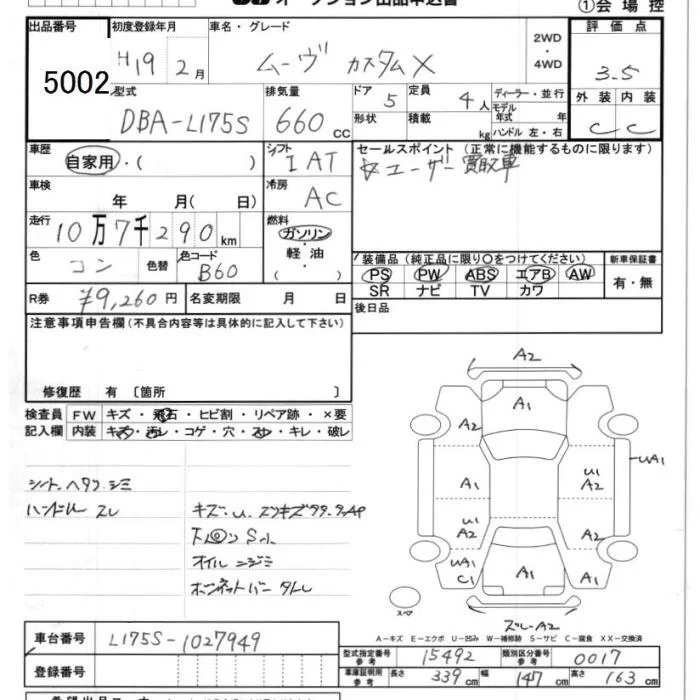 オークション出品申込書
①会場控
出品番号 初度登録年月 車名・グレード 2WD・4WD 評価点
5002 H19 2月 ムーヴ カスタムX 3.5
型式 排気量 ドア 定員 ディーラー・並行 外装 内装
DBA-L175S 660cc 5 4人 モデル年式 年 C C
形状 積載 kg ハンドル 左・右
車歴 シフト セールスポイント (正常に機能するものに限ります)
自家用・( ) IAT ☆ユーザー買取車
車検 年 月( 日) 冷房 AC
走行 10万7千290km 燃料 ガソリン・軽油・( )
色 コン 色替 色コード B60
装備品 (純正品に限り○をつけてください) 新車保証書
PS PW ABS エアB AW 有・無
SR ナビ TV カワ
R券 ¥9,260円 名変期限 月 日
後日品
注意事項申告欄(不具合内容等は具体的に記入して下さい)
修復歴 有 〔箇所 〕
検査員 FW キズ・飛石・ヒビ割・リペア跡・×要
記入欄 内装 キズ・汚レ・コゲ・穴・スレ・キレ・破レ
シート ヘタリ シミ
ハンドル スレ
オイル ニジミ
A2
A1
A2
UA1
A1
U1
A2
U1
A2
UA1
C1
A1
A1
スペア
ズレ-A2
A-キズ E-エクボ U-凹み W-補修跡 S-サビ C-腐食 XX-交換済
車台番号 L175S-1027949
登録番号
型式指定番号 参考 15492 類別区分番号 参考 0017
車庫証明用 参考 長さ 339cm 幅 147cm 高さ 163cm